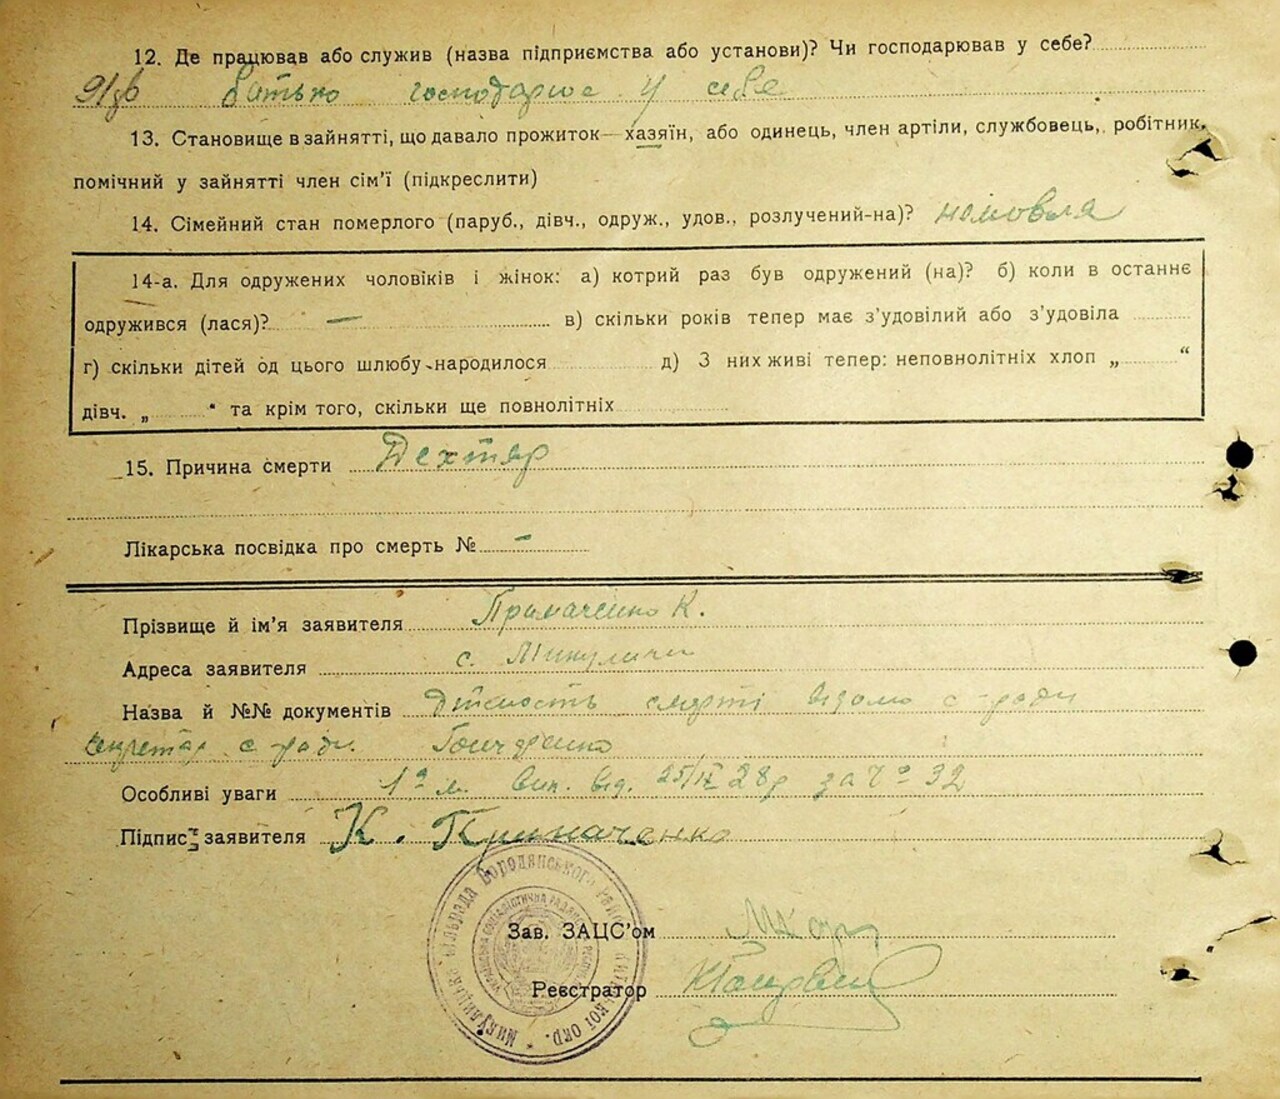 12. Де працював або служив (назва підприємства або установи)? Чи господарював у себе?
батько господарює у себе
13. Становище в зайнятті, що давало прожиток—хазяїн, або одинець, член артілі, службовець, робітник,
помічний у зайнятті член сім'ї (підкреслити)
14. Сімейний стан померлого (паруб., дівч., одруж., удов., розлучений-на)? немовля
14-а. Для одружених чоловіків і жінок: а) котрий раз був одружений (на)? б) коли в останнє
одружився (лася)? — в) скільки років тепер має з'удовілий або з'удовіла
г) скільки дітей од цього шлюбу народилося д) З них живі тепер: неповнолітніх хлоп „ “
дівч. „ “ та крім того, скільки ще повнолітніх
15. Причина смерти Дехтяр
Лікарська посвідка про смерть № —
Прізвище й ім'я заявителя Примаченко К.
Адреса заявителя с. Микуличи
Назва й №№ документів смерті відомо с-ради
секретар с-ради Гончаренко
Особливі уваги вид. 25/IX 28р за № 32
Підпис заявителя К. Примаченко
Микулицька сільрада Бородянського району Київської окр.
Українська Соціалістична Радянська Республіка
Зав. ЗАЦС'ом
Реєстратор